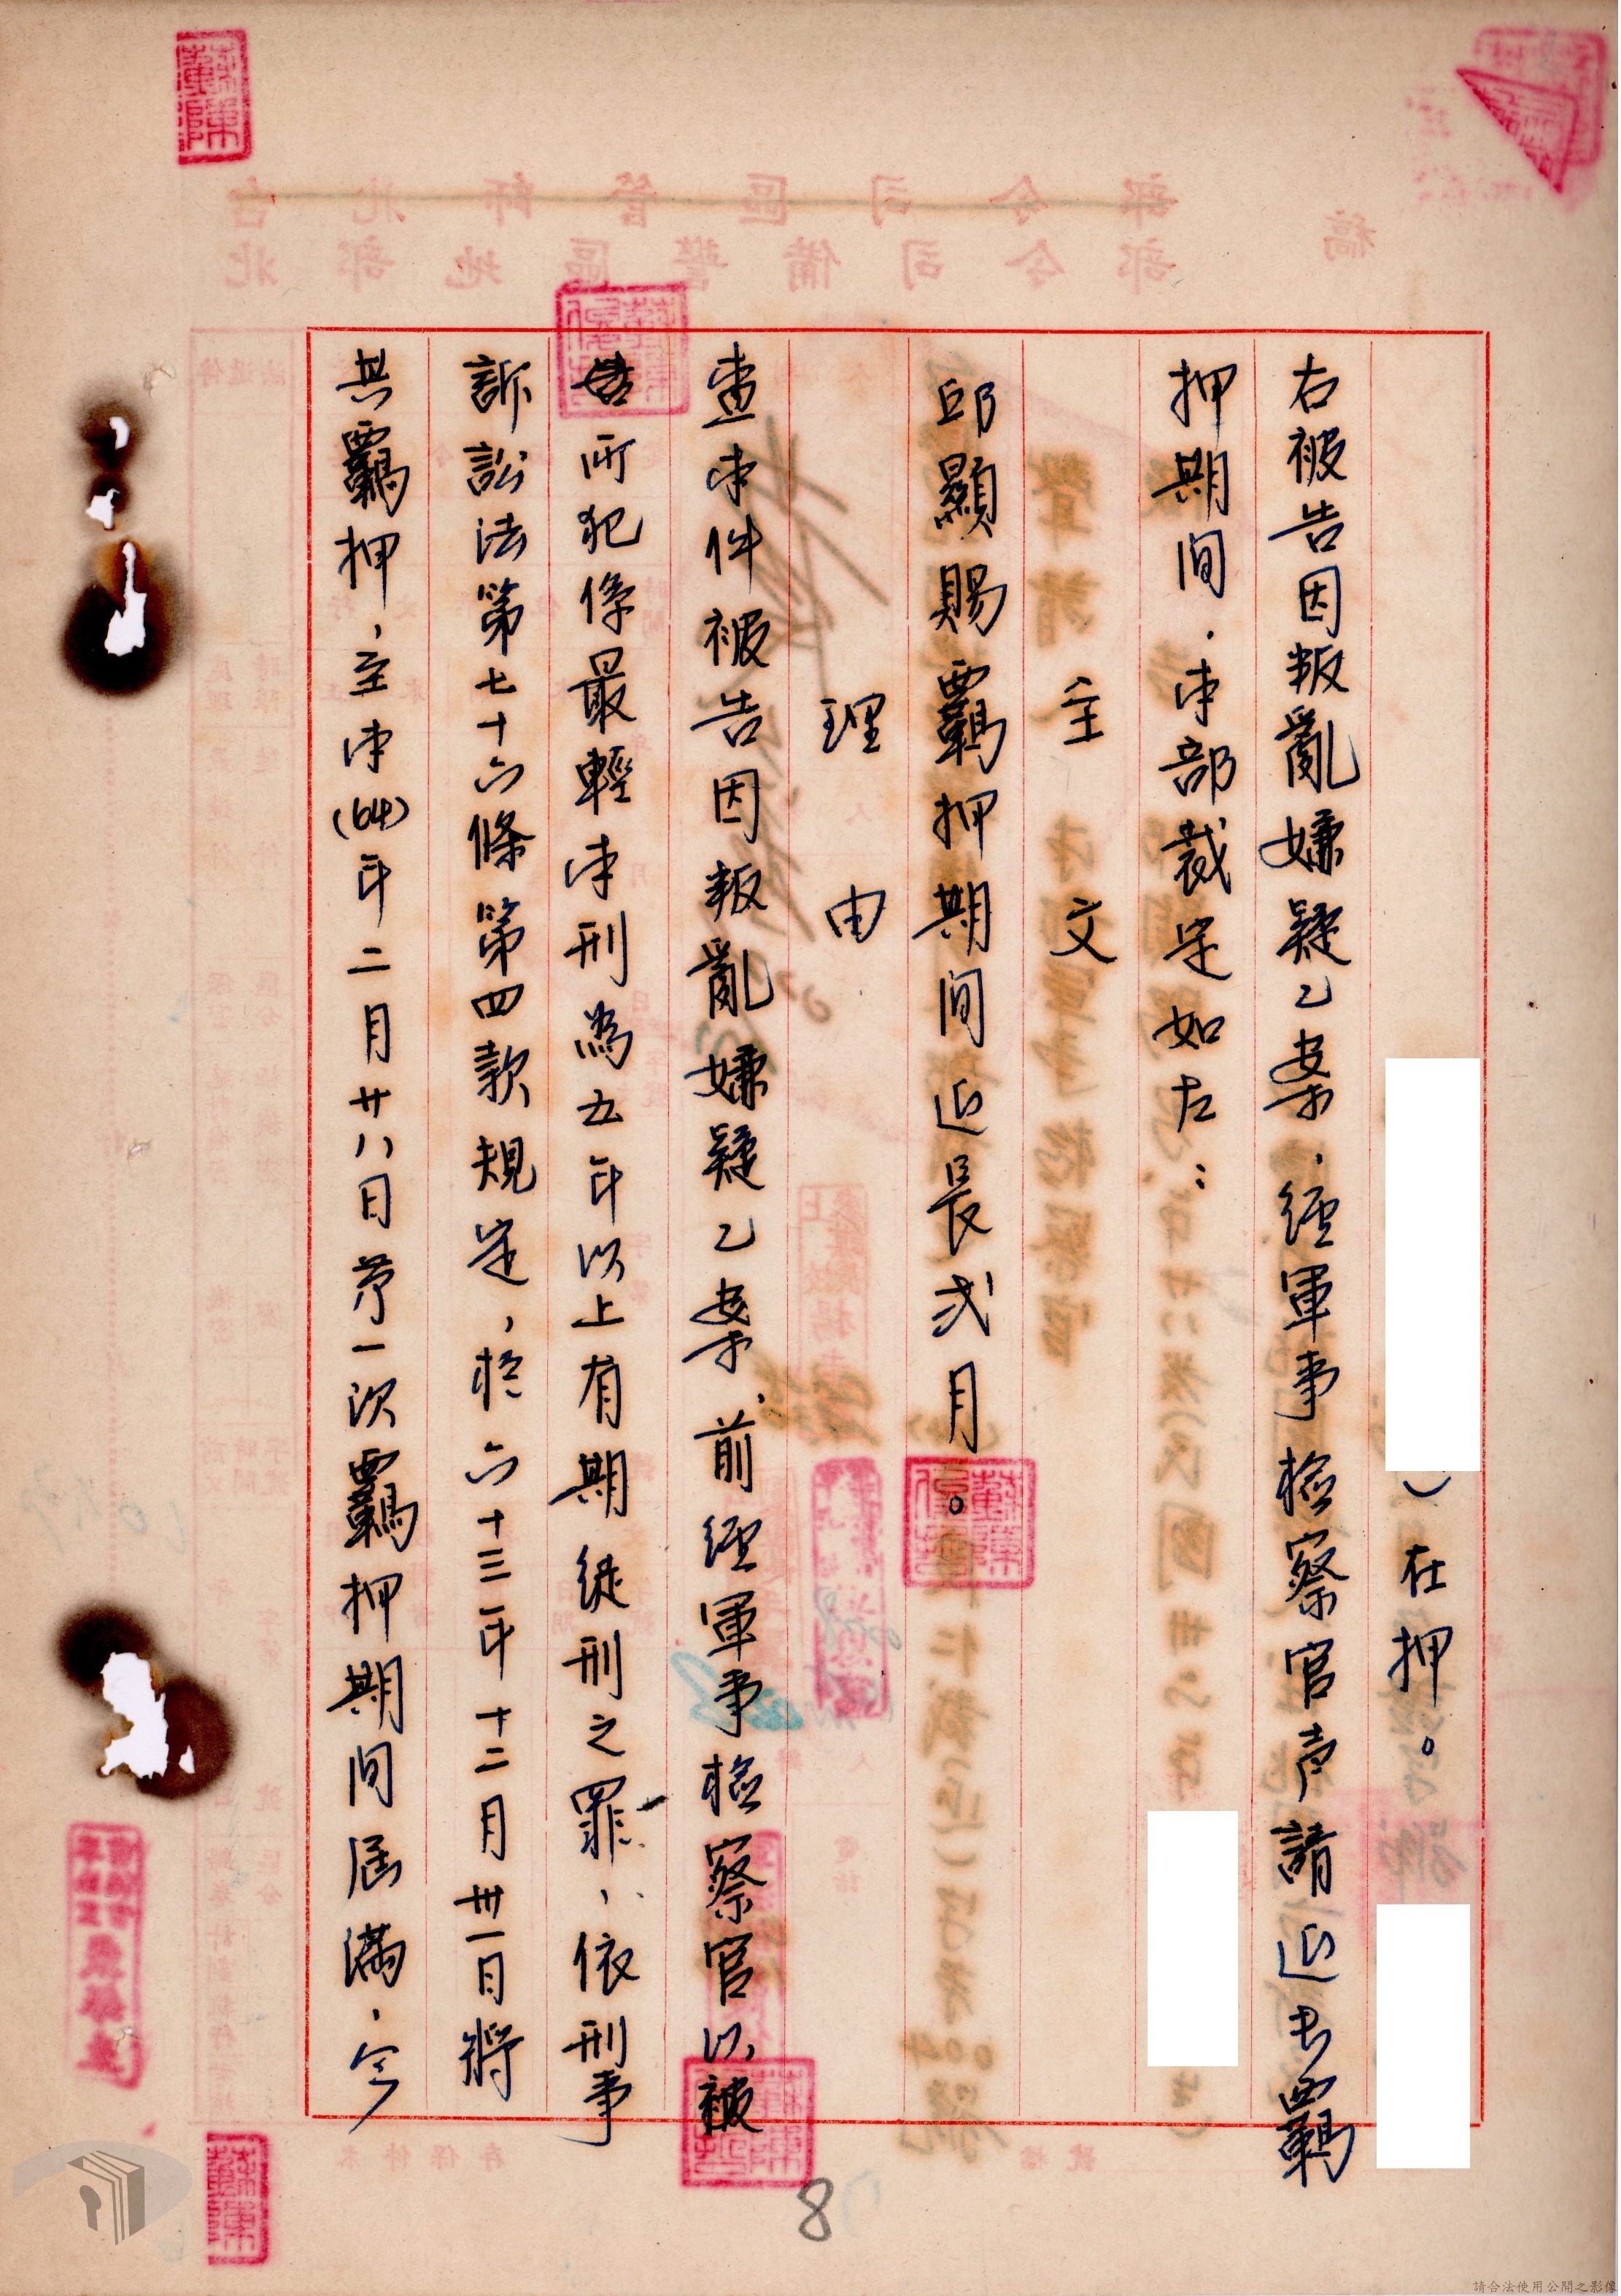 ）在押。
右被告因叛亂嫌疑乙案，經軍事檢察官声請延長羈
押期間，本部裁定如左：
主文
邱顯賜羈押期間延長貳月。
理由
查本件被告因叛亂嫌疑乙案，前經軍事檢察官以被
告所犯係最輕本刑為五年以上有期徒刑之罪，依刑事
訴訟法第七十六條第四款規定，於六十三年十二月卅一日將
其羈押，至本(64)年二月廿八日第一次羈押期間屆滿，今
8
請合法使用公開之影像